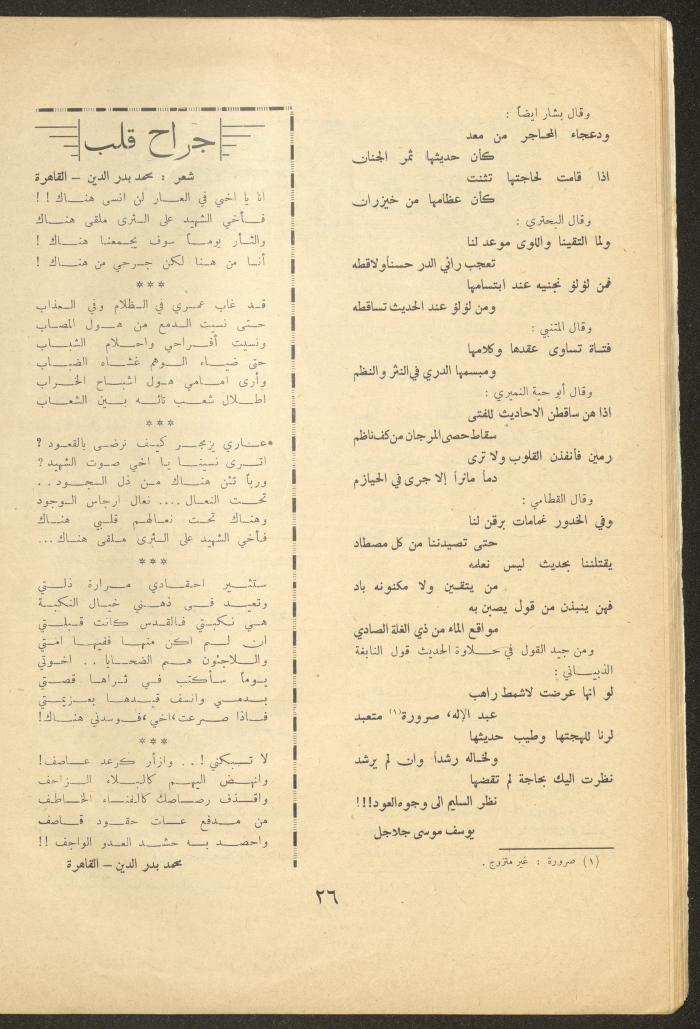 وقال بشار ايضاً :
ودعجاء المحاجر من معد
كأن حديثها ثمر الجنان
اذا قامت لحاجتها تثنت
كأن عظامها من خيزران
وقال البحتري :
ولما التقينا واللوى موعد لنا
تعجب رائي الدر حسناً ولاقطه
فمن لؤلؤ تجنيه عند ابتسامها
ومن لؤلؤ عند الحديث تساقطه
وقال المتنبي :
فتاة تساوى عقدها وكلامها
ومبسمها الدري في النثر والنظم
وقال أبو حية النميري :
اذا هن ساقطن الاحاديث للفتى
سقاط حصى المرجان من كف ناظم
رمين فأنفذن القلوب ولا ترى
دماً مائراً إلا جرى في الحيازم
وقال القطامي :
وفي الخدور غمامات برقن لنا
حتى تصيدننا من كل مصطاد
يقتلننا بحديث ليس نعلمه
من يتقين ولا مكنونه باد
فهن ينبذن من قول يصبن به
مواقع الماء من ذي الغلة الصادي
ومن جيد القول في حلاوة الحديث قول النابغة
الذبياني :
لو انها عرضت لاشمط راهب
عبد الإله، صرورة (١) متعبد
لرنا للهجتها وطيب حديثها
ولخاله رشداً وان لم يرشد
نظرت اليك بحاجة لم تقضها
نظر السليم الى وجوه العود!!!
يوسف موسى جلاجل
(١) صرورة : غير متزوج .
جراح قلب
شعر : محمد بدر الدين – القاهرة
انا يا اخي في العار لن انسى هناك ! !
فأخي الشهيد على الثرى ملقى هناك
والثأر يوماً سوف يجمعنا هناك !
أنا من هنا لكن جرحي من هناك !
***
قد غاب عمري في الظلام وفي العذاب
حتى نسيت الدمع من هول المصاب
ونسيت أفراحي واحلام الشباب
حتى ضياء الوهم غشاه الضباب
وأرى امامي هول اشباح الخراب
اطلال شعب تائه بين الشعاب
***
عاري يزمجر كيف نرضى بالقعود ؟
اترى نسينا يا اخي صوت الشهيد ؟
وربا تئن هناك من ذل السجود . .
تحت النعال .... نعال ارجاس الوجود
وهناك تحت نعالهم قلبي هناك
فأخي الشهيد على الثرى ملقى هناك ...
***
ستثير احقادي مرارة ذلتي
وتعيد في ذهني خيال النكبة
هي نكبتي فالقدس كانت قبلتي
ان لم اكن منها ففيها امتي
واللاجئون هم الضحايا . . اخوتي
يوماً سأكتب في ثراها قصتي
بدمي وانسف قيدها بعزيمتي
فاذا صرعت، اخي، فوسدني هناك!
***
لا تبكني ! . . وازأر كرعد عاصف!
وانهض اليهم كالبلاء الزاحف
واقذف رصاصك كالفناء الخاطف
من مدفع عات حقود قاصف
واحصد به حشد العدو الواجف !!
محمد بدر الدين – القاهرة
٢٦